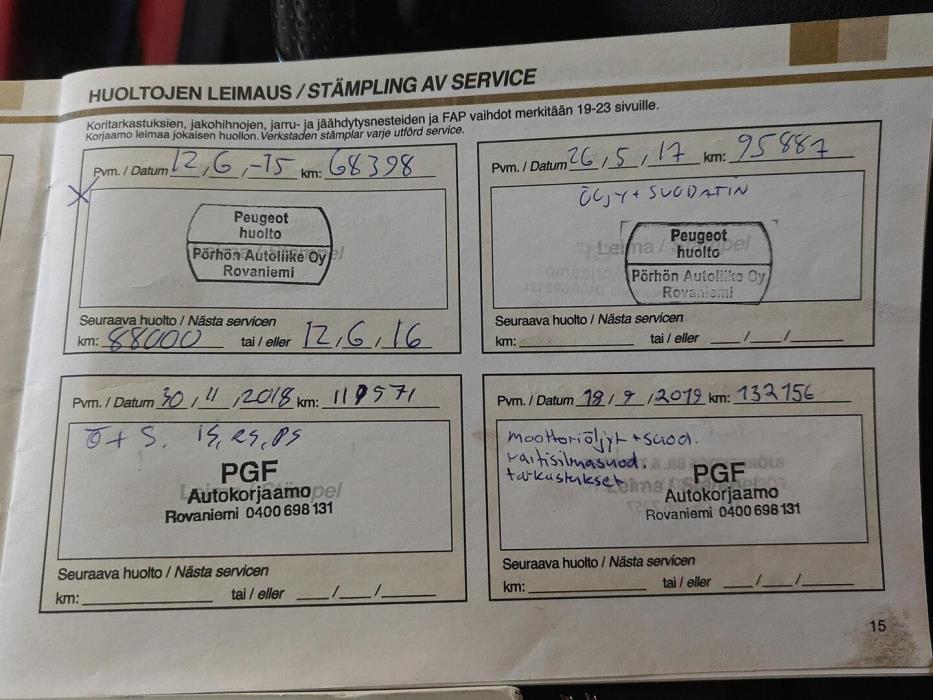 HUOLTOJEN LEIMAUS / STÄMPLING AV SERVICE
Koritarkastuksien, jakohihnojen, jarru- ja jäähdytysnesteiden ja FAP vaihdot merkitään 19-23 sivuille.
Korjaamo leimaa jokaisen huollon. Verkstaden stämplar varje utförd service.
Pvm. / Datum 12,6,-15 km: 68398
X
Peugeot
huolto
Pörhön Autoliike Oy
Rovaniemi
Seuraava huolto / Nästa servicen
km: 88000 tai / eller 12,6,16
Pvm. / Datum 26,5,17 km: 95887
ÖLJY + SUODATIN
Leima / Stämpel
Peugeot
huolto
Pörhön Autoliike Oy
Rovaniemi
Seuraava huolto / Nästa servicen
km: tai / eller / /
Pvm. / Datum 30,11,2018 km:
Ö + S. IS, RS, PS
Leima / Stämpel
PGF
Autokorjaamo
Rovaniemi 0400 698 131
Seuraava huolto / Nästa servicen
km: tai / eller / /
Pvm. / Datum 18/9/2019 km: 132756
moottoriöljyt + suod.
raitisilmasuod.
tarkastukset
Leima / Stämpel
PGF
Autokorjaamo
Rovaniemi 0400 698 131
Seuraava huolto / Nästa servicen
km: tai / eller / /
15